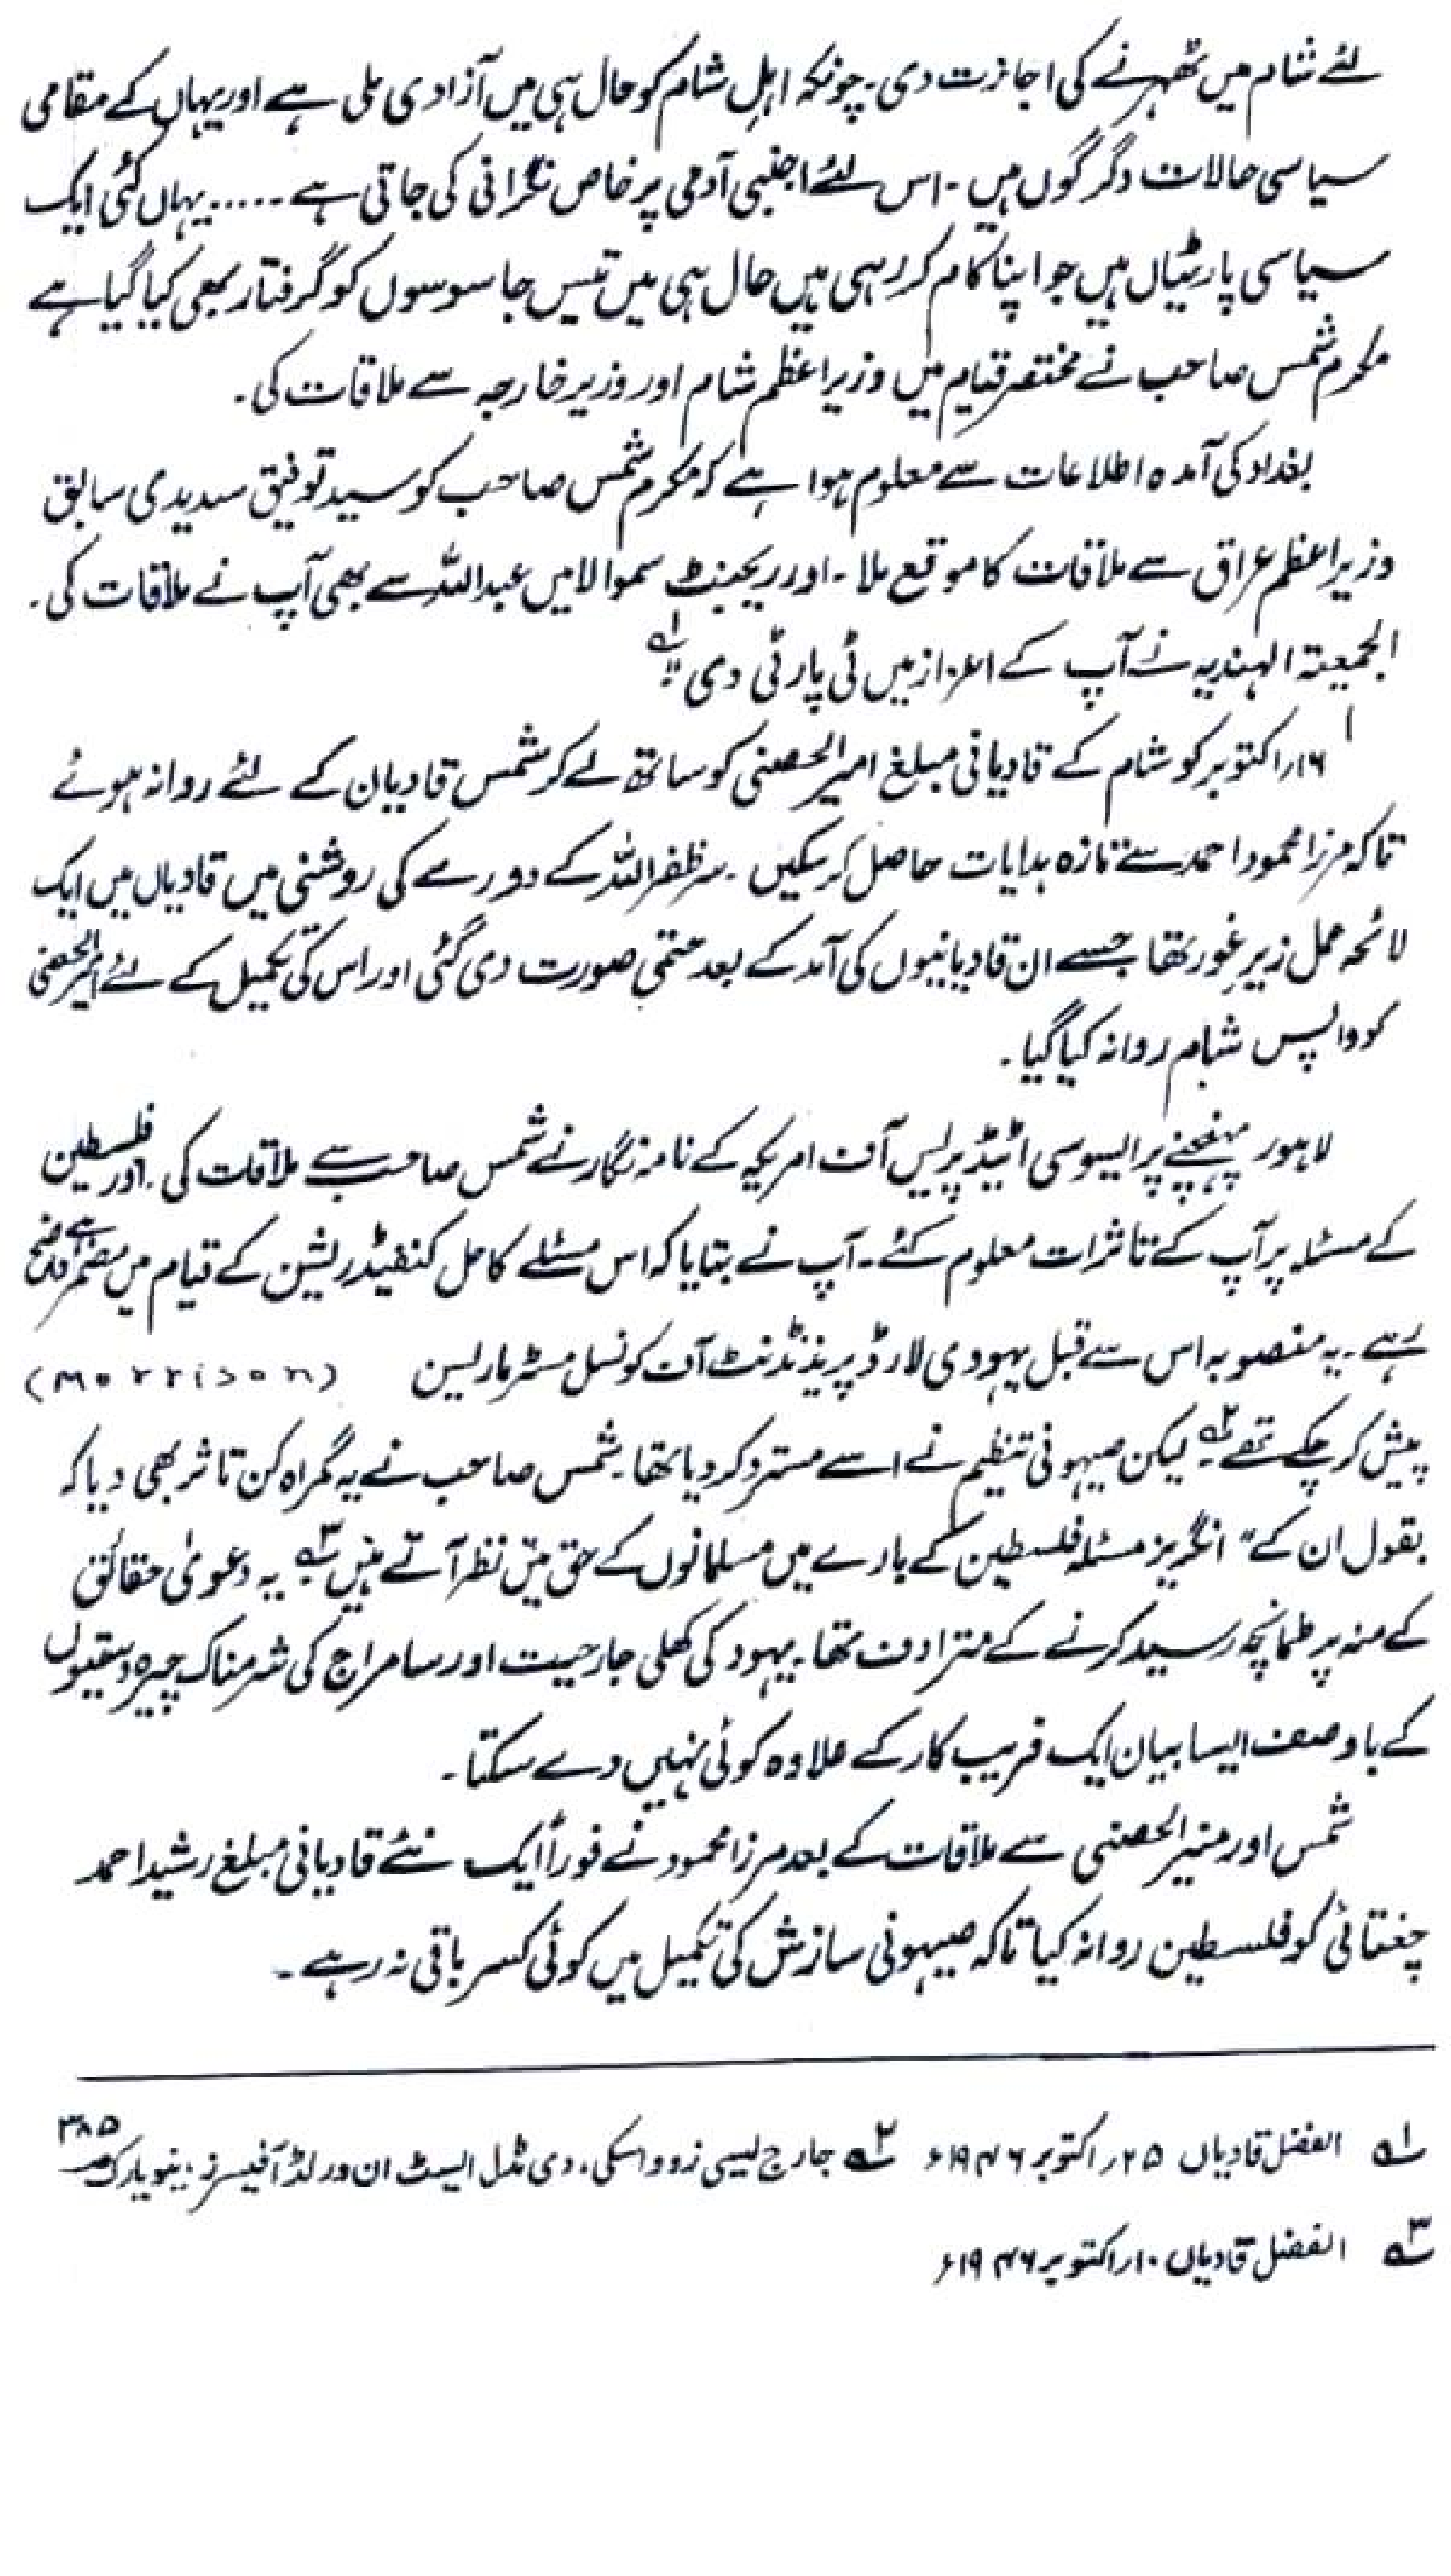 لئے شام میں ٹھہرنے کی اجازت دی۔ چونکہ اہلِ شام کو حال ہی میں آزادی ملی ہے اور یہاں کے مقامی
سیاسی حالات دگرگوں ہیں۔ اس لئے اجنبی آدمی پر خاص نگرانی کی جاتی ہے ۔۔۔۔۔ یہاں کئی ایک
سیاسی پارٹیاں ہیں جو اپنا کام کر رہی ہیں حال ہی میں تیس جاسوسوں کو گرفتار بھی کیا گیا ہے
مکرم شمس صاحب نے مختصر قیام میں وزیر اعظم شام اور وزیر خارجہ سے ملاقات کی۔
بغداد کی آمدہ اطلاعات سے معلوم ہوا ہے کہ مکرم شمس صاحب کو سید توفیق سدیدی سابق
وزیر اعظم عراق سے ملاقات کا موقع ملا۔ اور ریجینٹ سموالامیں عبداللہ سے بھی آپ نے ملاقات کی۔
الجمعیتہ الہندیہ نے آپ کے اعزاز میں ٹی پارٹی دی"۱؎
۱۶؍ اکتوبر کو شام کے قادیانی مبلغ امیر الحصنی کو ساتھ لے کر شمس قادیان کے لئے روانہ ہوئے
تاکہ مرزا محمود احمد سے تازہ ہدایات حاصل کر سکیں۔ سر ظفر اللہ کے دورے کی روشنی میں قادیاں میں ایک
لائحہ عمل زیرِ غور تھا جسے ان قادیانیوں کی آمد کے بعد حتمی صورت دی گئی اور اس کی تکمیل کے لئے امیر الحصنی
کو واپس شام روانہ کیا گیا۔
لاہور پہنچنے پر ایسوسی ائیٹڈ پریس آف امریکہ کے نامہ نگار نے شمس صاحب سے ملاقات کی۔ اور فلسطین
کے مسئلہ پر آپ کے تاثرات معلوم کئے۔ آپ نے بتایا کہ اس مسئلے کا حل کنفیڈریشن کے قیام میں مضمر ہے واضح
رہے۔ یہ منصوبہ اس سے قبل یہودی لارڈ پریذیڈنٹ آف کونسل مسٹر مارلسین (Morrison)
پیش کر چکے تھے۲؎ لیکن صیہونی تنظیم نے اسے مسترد کر دیا تھا۔ شمس صاحب نے یہ گمراہ کن تاثر بھی دیا کہ
بقول ان کے" انگریز مسئلہ فلسطین کے بارے میں مسلمانوں کے حق میں نظر آتے ہیں"۳؎ یہ دعویٰ حقائق
کے منہ پر طمانچہ رسید کرنے کے مترادف تھا۔ یہود کی کھلی جارحیت اور سامراج کی شرمناک چیرہ دستیوں
کے باوصف ایسا بیان ایک فریب کار کے علاوہ کوئی نہیں دے سکتا۔
شمس اور منیر الحصنی سے ملاقات کے بعد مرزا محمود نے فوراً ایک نئے قادیانی مبلغ رشید احمد
چغتائی کو فلسطین روانہ کیا تاکہ صیہونی سازش کی تکمیل میں کوئی کسر باقی نہ رہے۔
۱؎ الفضل قادیاں ۲۵؍ اکتوبر ۱۹۴۶ء ۲؎ جارج لیسی زوواسکی، دی مڈل ایسٹ ان ورلڈ آفیسرز، نیویارک ص ۳۸۵
۳؎ الفضل قادیاں ۱۰؍ اکتوبر ۱۹۴۶ء